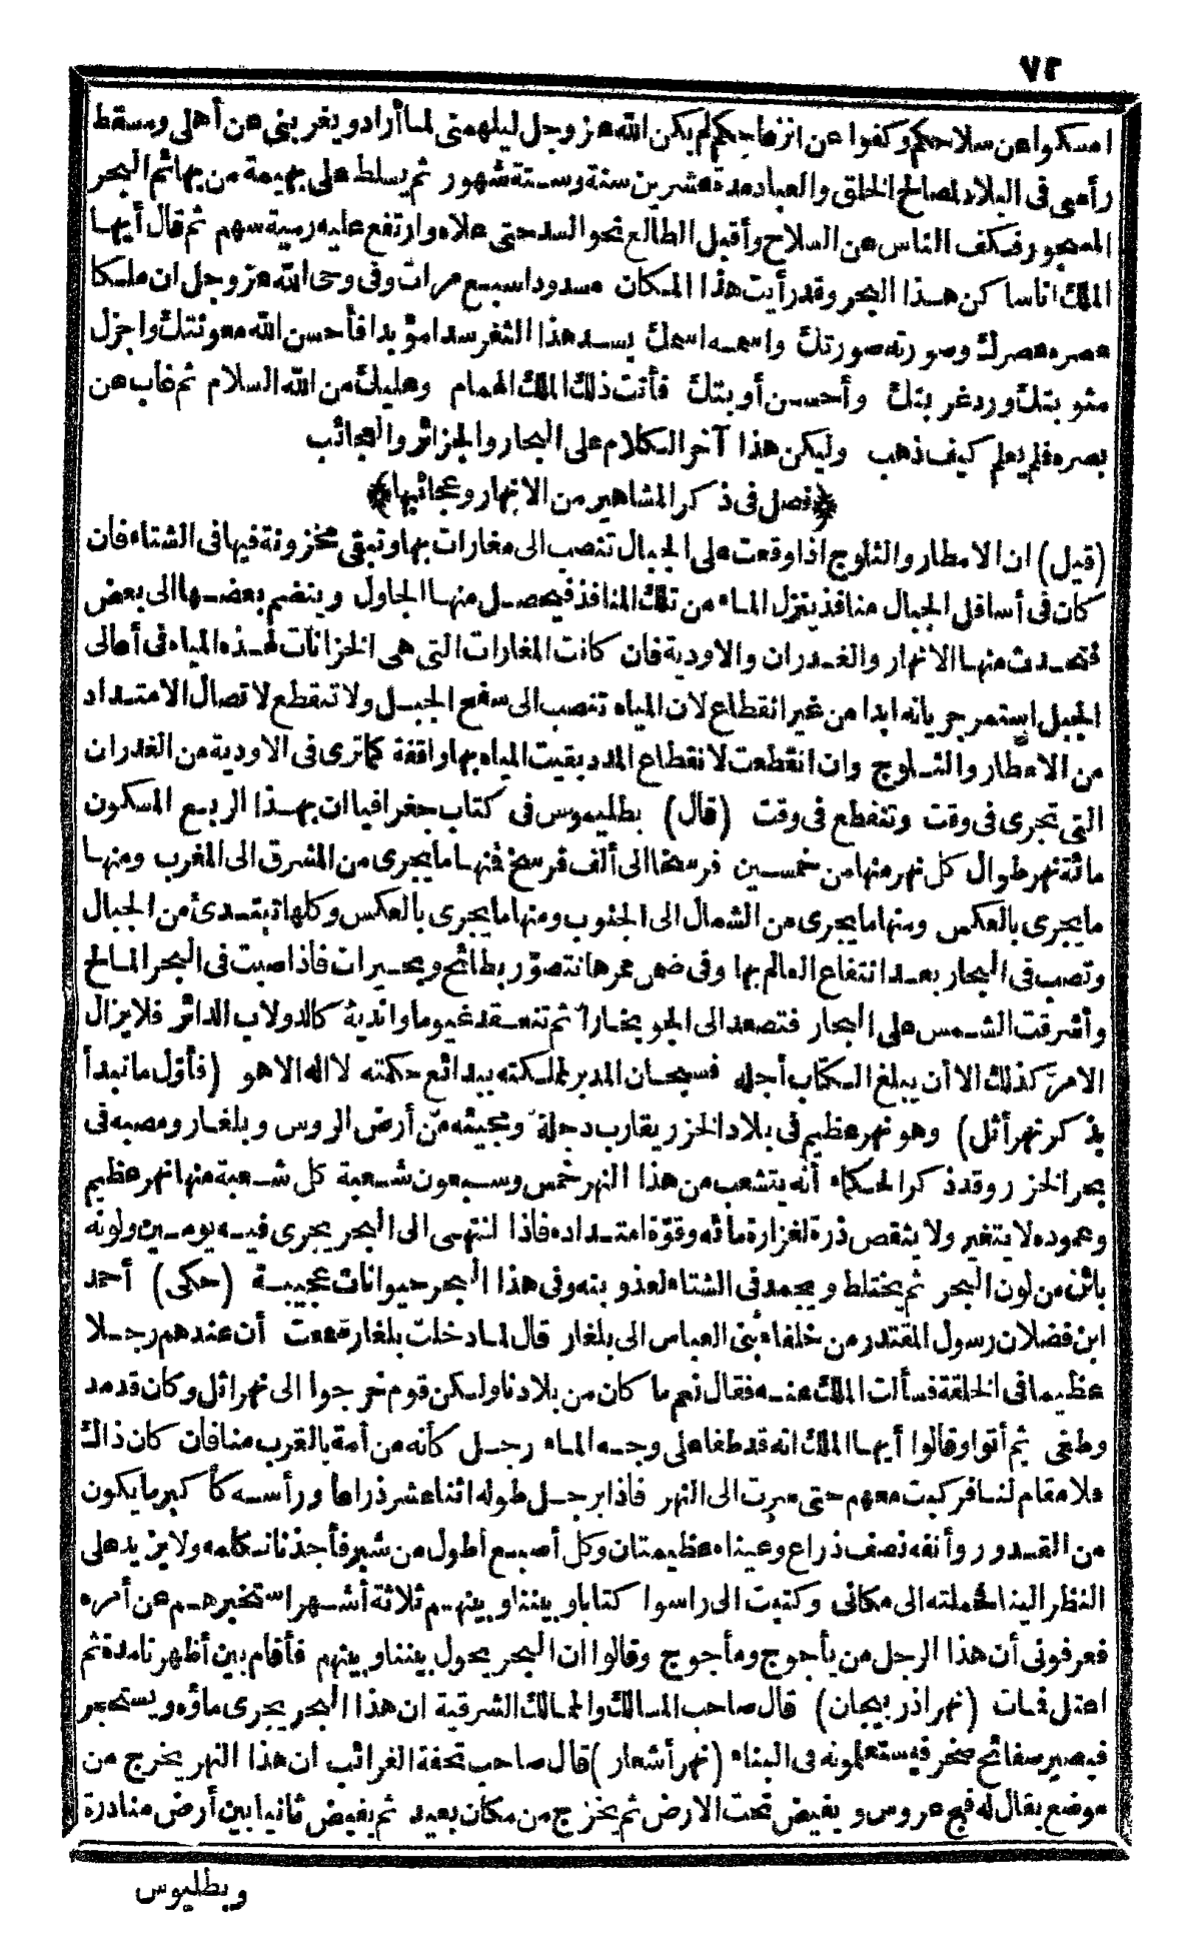 ٧٢
امسكوا عن سلاحكم وكفوا عن انزعاجكم لم يكن الله عز وجل ليلهمنى لما أراد ويغر بنى عن أهلى ومسقط
رأسى فى البلاد لمصالح الخلق والعباد مدة عشرين سنة وستة شهور ثم يسلط على بهيمة من بهائم البحر
المسجور فكف الناس عن السلاح وأقبل الطالع نحو السد حتى علاه وارتفع عليه رمية سهم ثم قال أيها
الملك انا ساكن هذا البحر وقد رأيت هذا المكان مسدودا سبع مرات وفى وحى الله عز وجل ان ملكا
عصره عصرك وصورته صورتك واسمه اسمك يسد هذا الثغر سدا مؤبدا فأحسن الله معونتك واجزل
مثوبتك ورد غربتك وأحسن أوبتك فأنت ذلك الملك الهمام وعليك من الله السلام ثم غاب عن
بصره فلم يعلم كيف ذهب وليكن هذا آخر الكلام على البحار والجزائر والعجائب
﴿فصل فى ذكر المشاهير من الانهار وعجائبها﴾
(قيل) ان الامطار والثلوج اذا وقعت على الجبال تنصب الى مغارات بها وتبقى مخزونة فيها فى الشتاء فان
كان فى أسافل الجبال منافذ ينزل الماء من تلك المنافذ فيحصل منها الجاول وينضم بعضها الى بعض
فتحدث منها الانهار والغدران والاودية فان كانت المغارات التى هى الخزانات لهذه المياه فى أعالى
الجبل استمر جريانه ابدا من غير انقطاع لان المياه تنصب الى سفح الجبل ولا تنقطع لاتصال الامتداد
من الامطار والثلوج وان انقطعت لانقطاع المدد بقيت المياه بها واقفة كما ترى فى الاودية من الغدران
التى تجرى فى وقت وتنقطع فى وقت (قال) بطليموس فى كتاب جغرافيا ان بهذا الربع المسكون
مائة نهر طوال كل نهر منها من خمسين فرسخا الى ألف فرسخ فنها ما يجرى من المشرق الى المغرب ومنها
ما يجرى بالعكس ومنها ما يجرى من الشمال الى الجنوب ومنها ما يجرى بالعكس وكلها تبتدئ من الجبال
وتصب فى البحار بعد انتفاع العالم بها وفى ضمن ممرها تتصوّر بطائح وبحيرات فاذا صبت فى البحر المالح
وأشرقت الشمس على البحار فتصعد الى الجو بخارا ثم تنعقد غيوما واندية كالدولاب الدائر فلا يزال
الامر كذلك الا أن يبلغ الكتاب أجله فسبحان المدبر لملكته ببدائع حكمته لا اله الا هو (فأوّل ما نبدأ
بذكر نهر أثل) وهو نهر عظيم فى بلاد الخزر يقارب دجلة ومجيئه من أرض الروس وبلغار ومصبه فى
بحر الخزر وقد ذكر الحكماء أنه يتشعب من هذا النهر خمس وسبعون شعبة كل شعبة منها نهر عظيم
وعموده لا يتغير ولا ينقص ذرة لغزارة مائه وقوّة امتداده فاذا انتهى الى البحر يجرى فيه يومين ولونه
بائن من لون البحر ثم يختلط ويجمد فى الشتاء لعذوبته وفى هذا البحر حيوانات عجيبة (حكى) أحمد
ابن فضلان رسول المقتدر من خلفاء بنى العباس الى بلغار قال لما دخلت بلغار سمعت أن عندهم رجلا
عظيما فى الخلقة فسألت الملك عنه فقال نعم ما كان من بلادنا ولكن قوم خرجوا الى نهر اثل وكان قد مد
وطغى ثم أتوا وقالوا أيها الملك انه قد طفا على وجه الماء رجل كأنه من أمة بالقرب منا فان كان ذاك
فلا مقام لنا فركبت معهم حتى صرت الى النهر فاذا برجل طوله اثنا عشر ذراعا ورأسه كأكبر ما يكون
من القدور وأنفه نصف ذراع وعيناه عظيمتان وكل أصبع أطول من شبر فأخذنا نكلمه ولا يزيد على
النظر الينا فحملته الى مكانى وكتبت الى راسوا كتابا وبيننا وبينهم ثلاثة أشهر استخبرهم عن أمره
فعرفونى أن هذا الرجل من يأجوج ومأجوج وقالوا ان البحر يحول بيننا وبينهم فأقام بين أظهرنا مدة ثم
اعتل فمات (نهر اذربيجان) قال صاحب المسالك والممالك الشرقية ان هذا البحر يجرى ماؤه ويستحجر
فيصير صفائح صخر فيستعملونه فى البناء (نهر أشعار) قال صاحب تحفة الغرائب ان هذا النهر يخرج من
موضع يقال له فج عروس و يفيض تحت الارض ثم يخرج من مكان بعيد ثم يفيض ثانيا بين أرض منادرة
وبطليوس